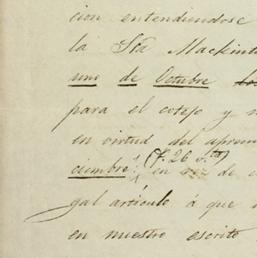 cion entendiendose
la Sta Mackint
uno de Octubre
para el cotejo y
en virtud del aprem
(f. 26 vta)
ciembre: en vez de
gal artículo á que
en nuestro escrito